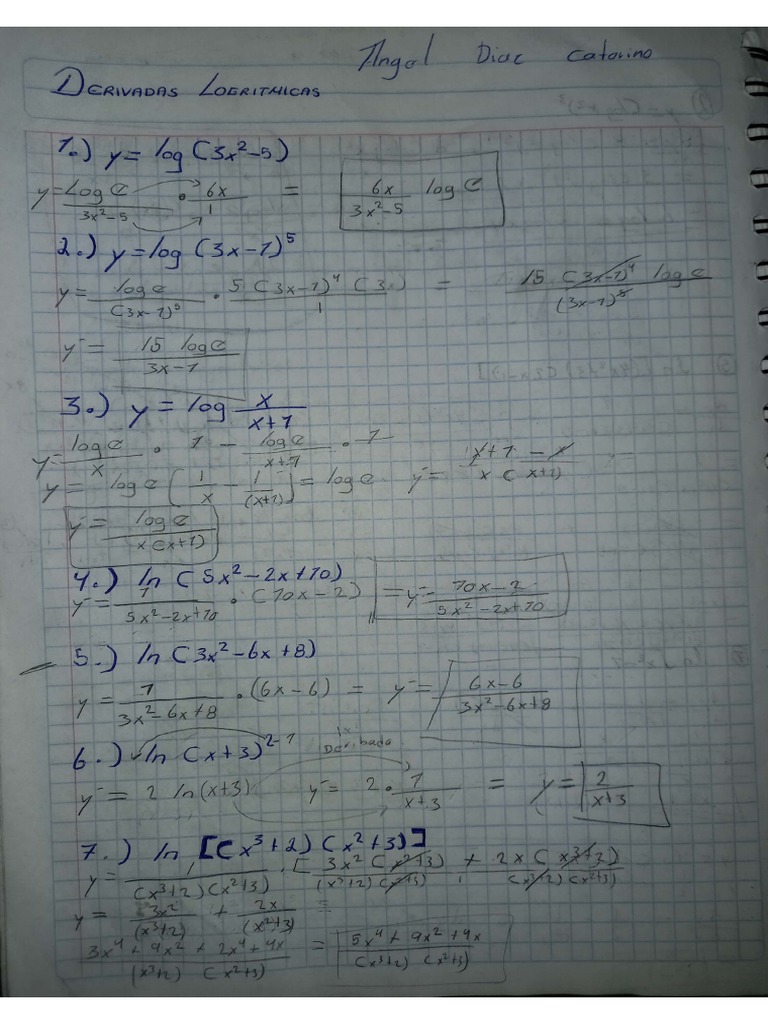 Angel Diac Catarino
DERIVADAS LOGRITMICAS
1.) y = log (3x²-5)
y = log e / 3x²-5 · 6x / 1 = 6x / 3x²-5 log e
2.) y = log (3x-1)⁵
y = log e / (3x-1)⁵ · 5 (3x-1)⁴ (3) / 1 = 15 (3x-1)⁴ log e / (3x-1)⁵
y' = 15 log e / 3x-1
3.) y = log x / x+1
y = log e / x · 1 - log e / x+1 · 1
y = log e [1/x - 1/(x+1)] = log e y' = x+1 - x / x (x+1) =
y' = log e / x(x+1)
4.) ln (5x²-2x+10)
y' = 1 / 5x²-2x+10 · (10x-2) = y' = 10x-2 / 5x²-2x+10
5.) ln (3x²-6x+8)
y = 1 / 3x²-6x+8 · (6x-6) = y' = 6x-6 / 3x²-6x+8
6.) ln (x+3)²⁻¹ Deribada
y' = 2 ln(x+3) y' = 2 · 1 / x+3 = y = 2 / x+3
7.) ln [(x³+2) (x²+3)]
y = 1 / (x³+2)(x²+3) · [3x² (x²+3) / (x³+2)(x²+3) + 2x (x³+3) / (x³+2)(x²+3)
y = 3x² / (x³+2) + 2x / (x²+3) =
3x⁴ + 9x² + 2x⁴ + 4x / (x³+2) (x²+3) = 5x⁴ + 9x² + 4x / (x³+2) (x²+3)